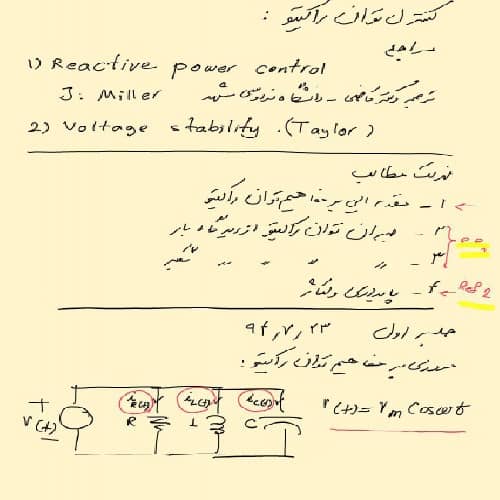 کنترل توان راکتیو :
مراجع
1) Reactive power control
J: Miller ترجمه دکتر قاضی - دانشگاه فردوسی مشهد
2) Voltage stability. (Taylor)
فهرست مطالب
۱ - مقدمه‌ای بر مفاهیم توان راکتیو
۲ - جبران توان راکتیو از دیدگاه بار
۳ - " " " "
۴ - پایداری ولتاژ Ref 2
جلسه اول ۹۴,۷,۲۳
مروری بر مفاهیم توان راکتیو :
+ v(t) - iR(t) R iL(t) L iC(t) C v(t) = Vm Cosωt